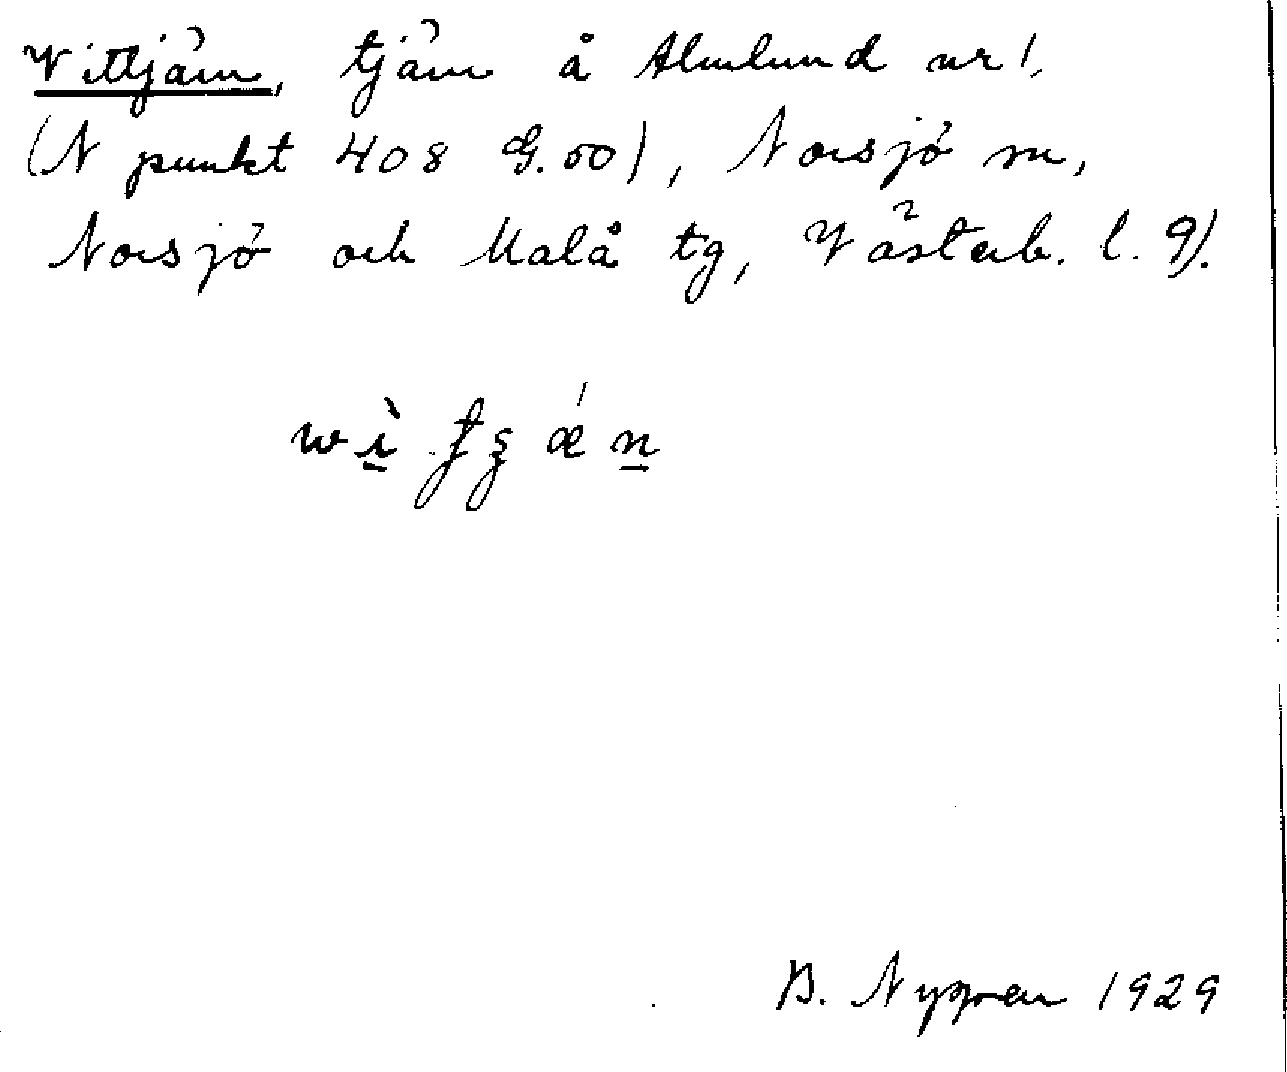 Vittjärn, tjärn å Almlund nr 1,
(N punkt 408 G.00), Norsjö sn,
Norsjö och Malå tg, Västerb. l. 9).
B. Nygren 1929